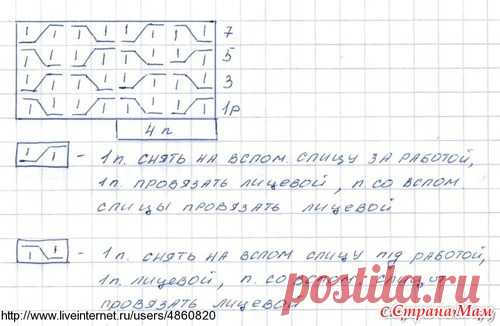 7
5
3
1р
4 п
- 1п. снять на вспом. спицу за работой,
1п. провязать лицевой, п. со вспом.
спицы провязать лицевой
- 1п. снять на вспом спицу під работой,
1п. лицевой, п. со вспом.
провязать лицевой
postila.ru
http://www.liveinternet.ru/users/4860820
с СтранаМам